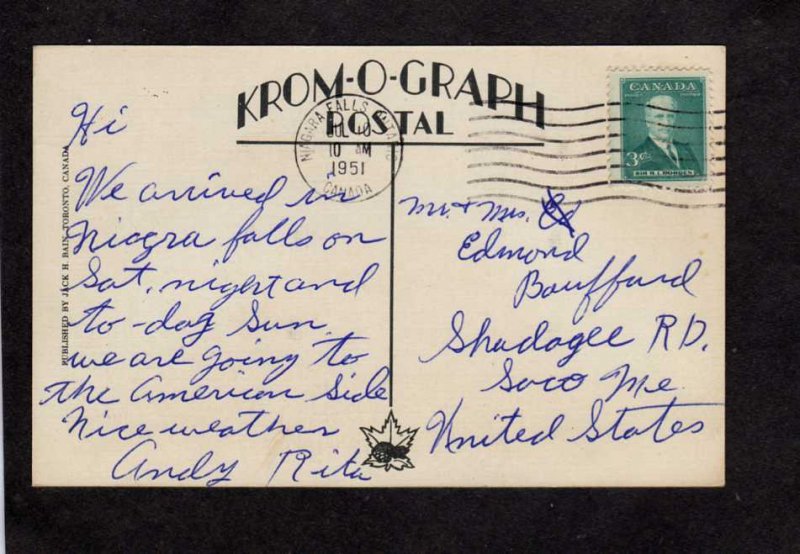 KROM-O-GRAPH
POSTAL
CANADA
3 cts
SIR R.L. BORDEN
NIAGARA FALLS ONTARIO
JUL 10
10 AM
1951
CANADA
PUBLISHED BY JACK H. BAIN, TORONTO, CANADA
Hi
We arrived in
Niagra falls on
Sat, night and
to-day Sun.
we are going to
the American Side
Nice weather
Andy Rita
Mr. + Mrs.
Edmond
Boufford
Shadagee RD.
Saco Me.
United States